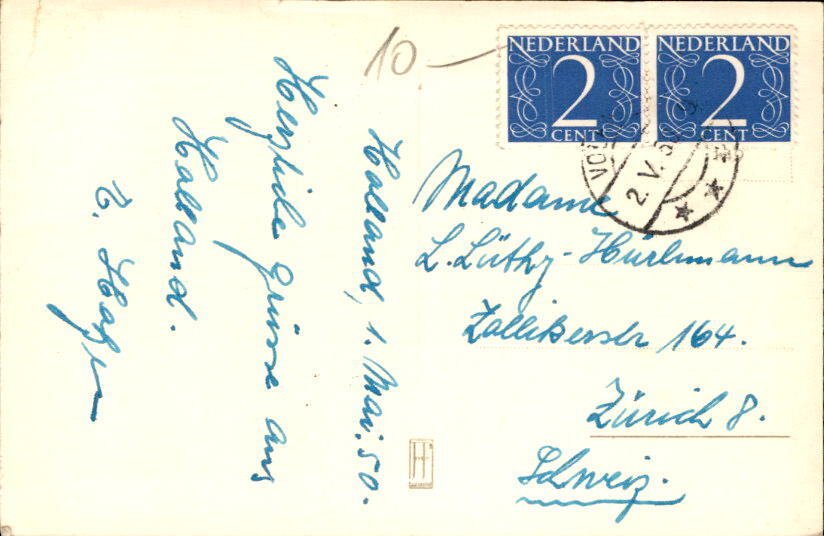 Holland, 1. Mai. 50.
Herzliche Grüsse aus
Holland.
10
NEDERLAND
2
CENT
NEDERLAND
2
CENT
2. V. 5
Madame
L. Lüthy-Hürlimann
Zollikerstr 164.
Zürich 8.
Schweiz.
H